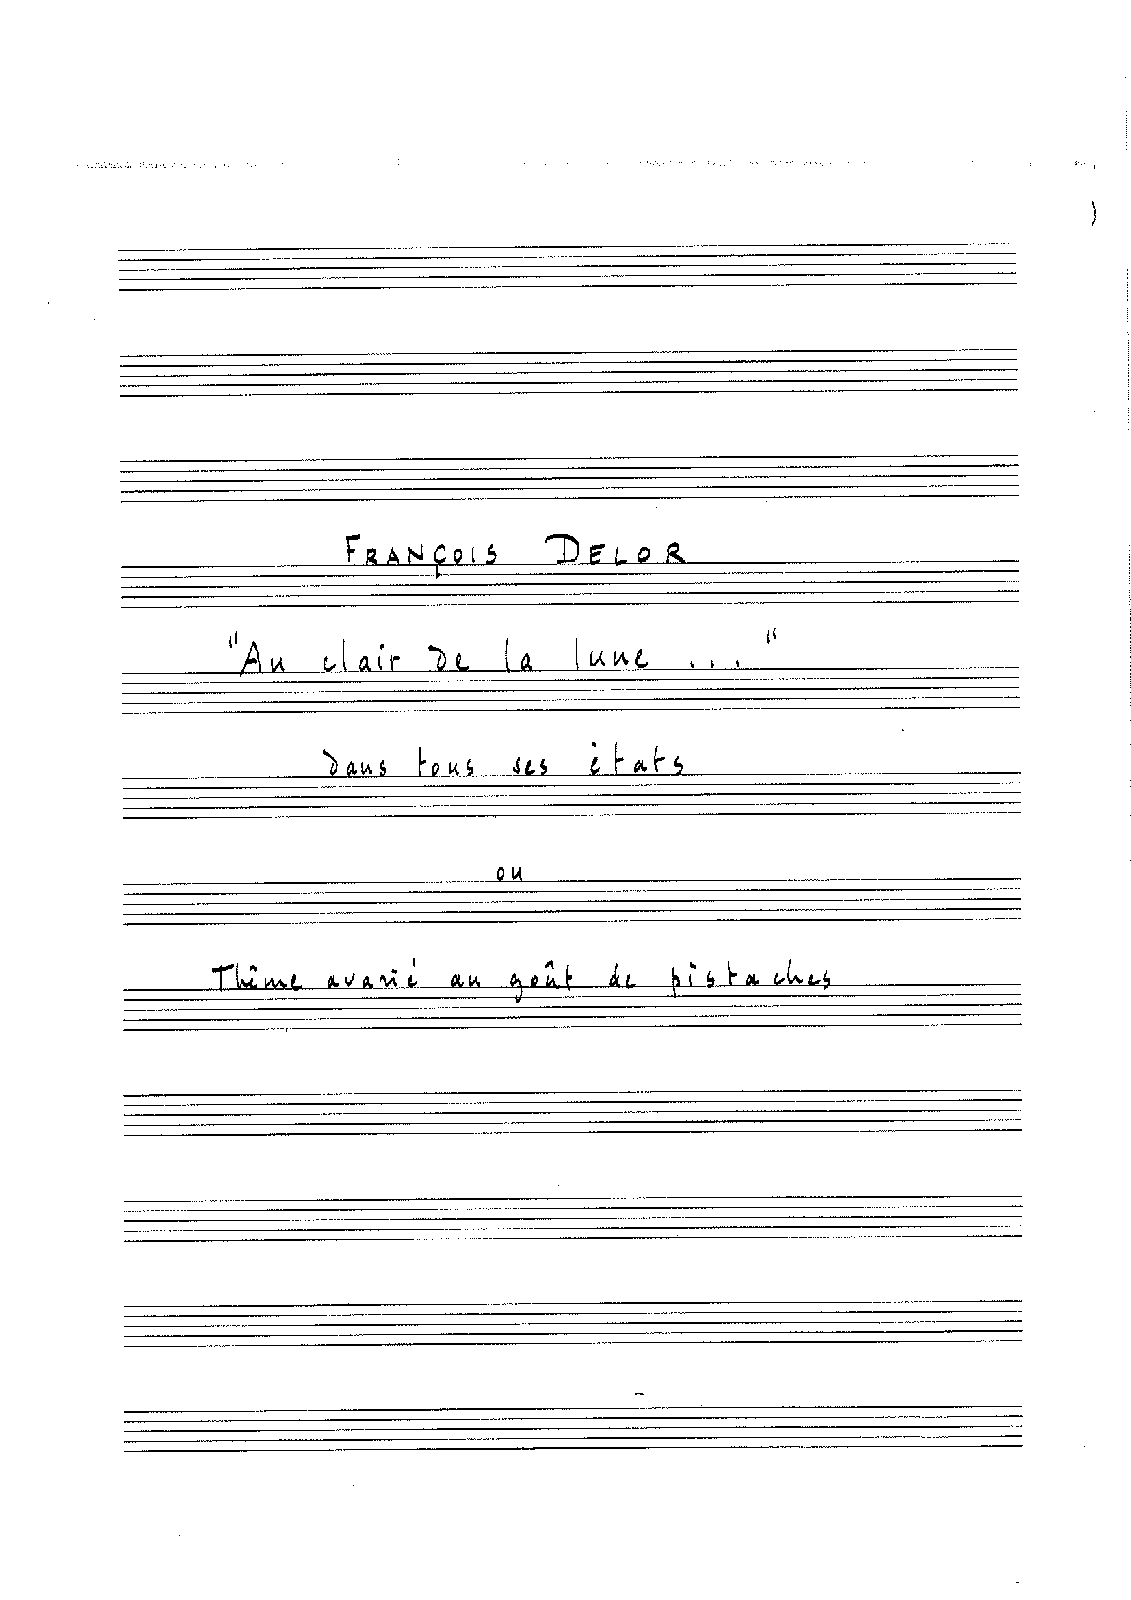 FRANÇOIS DELOR
"Au clair de la lune ..."
dans tous ses états
ou
Thême avarié au goût de pistaches